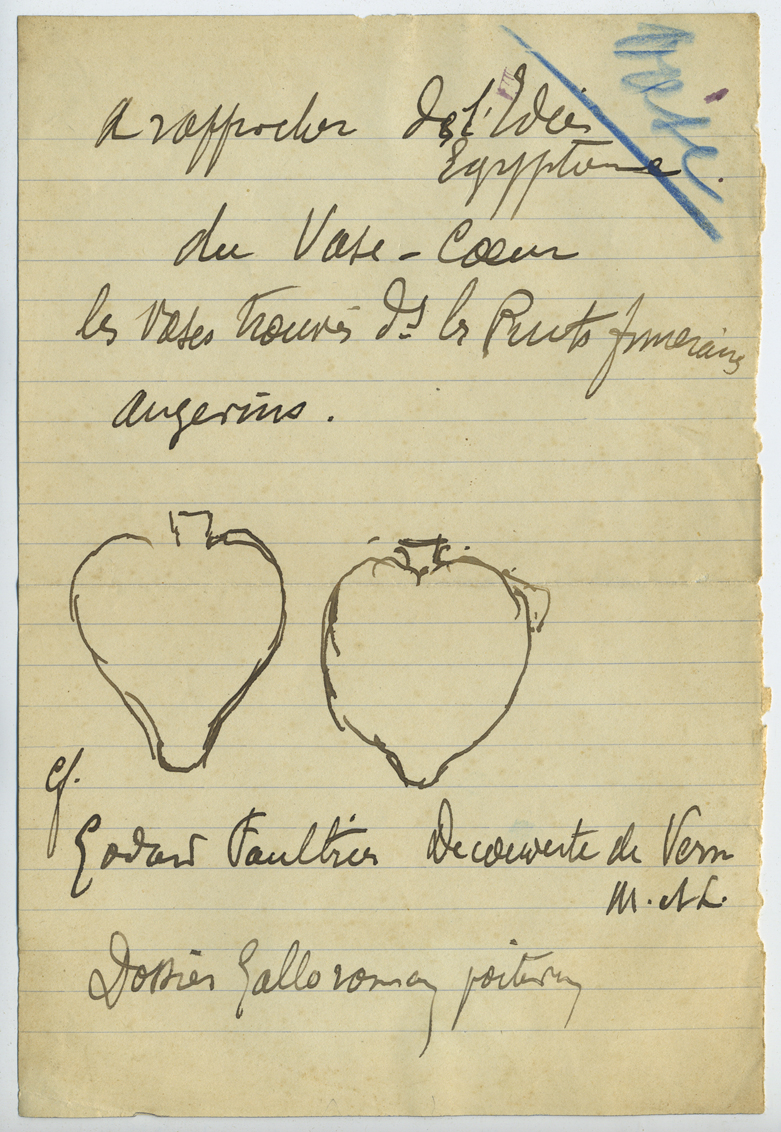 Vase
A rapprocher de l'Idée
Egyptienne.
du Vase - Cœur
les Vases trouvés ds les Puits funeraires
angevins.
cf.
Godard Faultrier Decouverte de Vern
M. et L.
Dossier Gallo romain poitevin